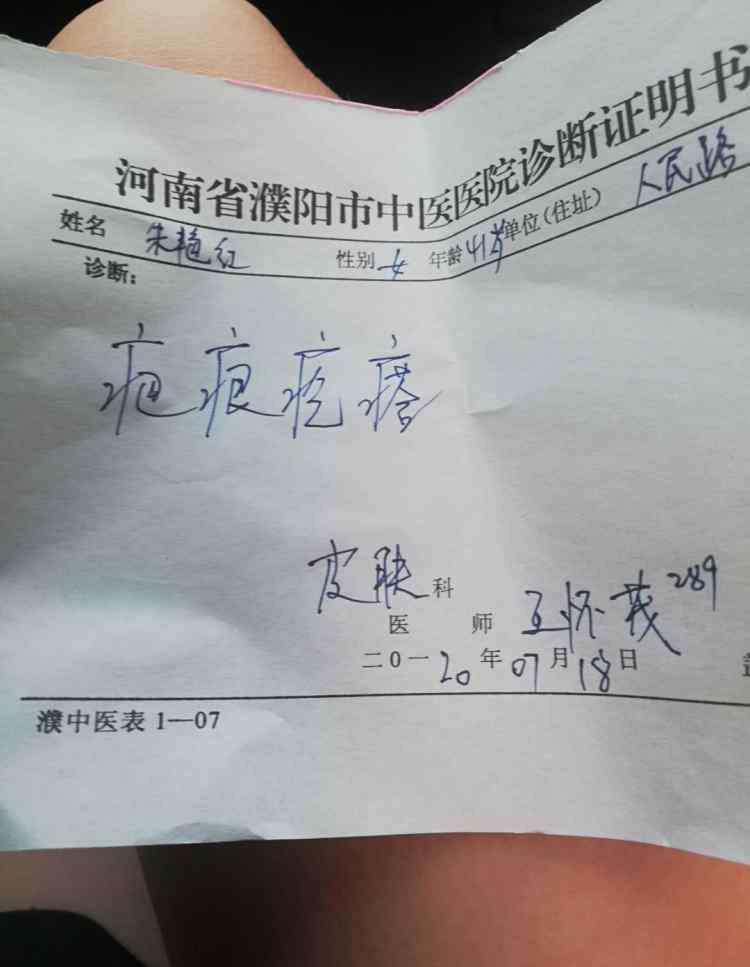 河南省濮阳市中医医院诊断证明书
姓名 朱艳红 性别 女 年龄 41岁 单位(住址) 人民路
诊断:
疤痕疙瘩
皮肤科
医 师 王怀茂 289
二0一20年07月18日
濮中医表1—07